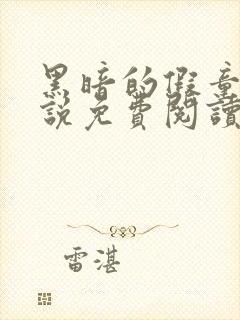 黑暗的假童
說免費閱讀
雷湛